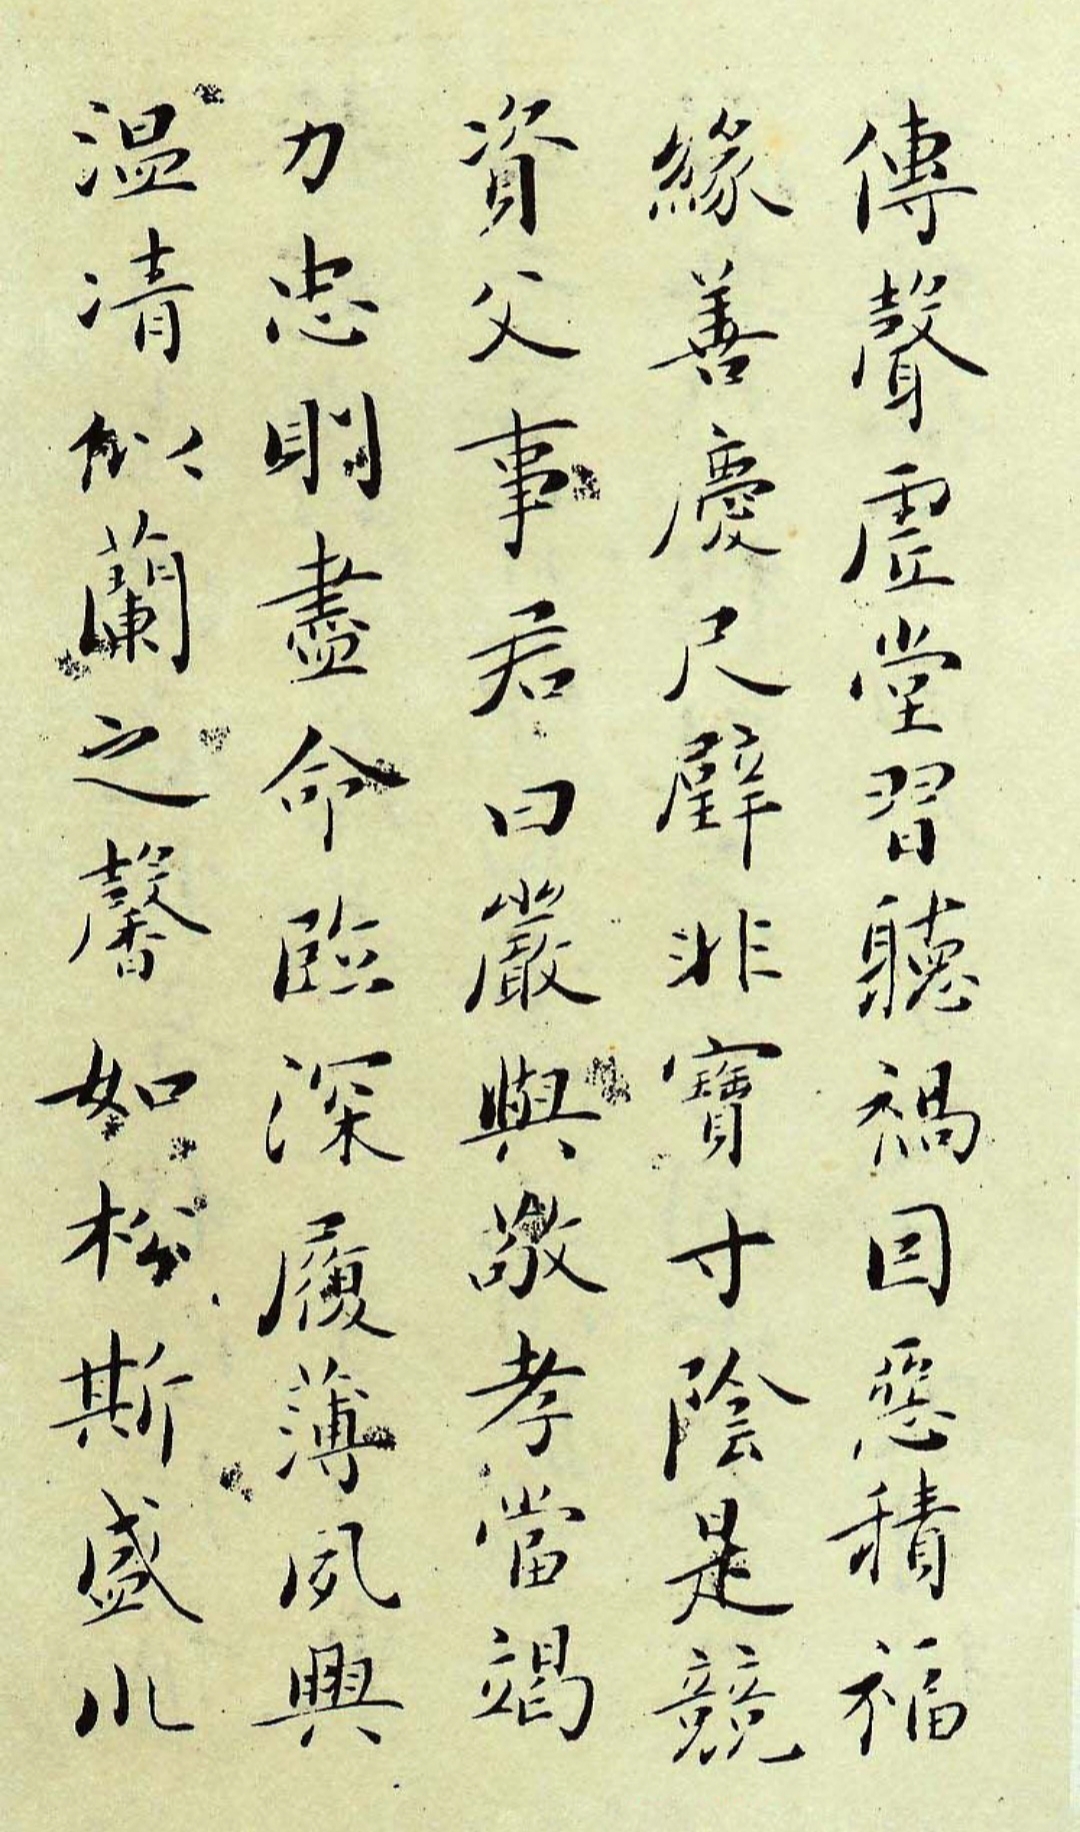 傳聲虛堂習聽禍因惡積福
緣善慶尺璧非寶寸陰是競
資父事君曰嚴與敬孝當竭
力忠則盡命臨深履薄夙興
温凊似蘭之馨如松斯盛川